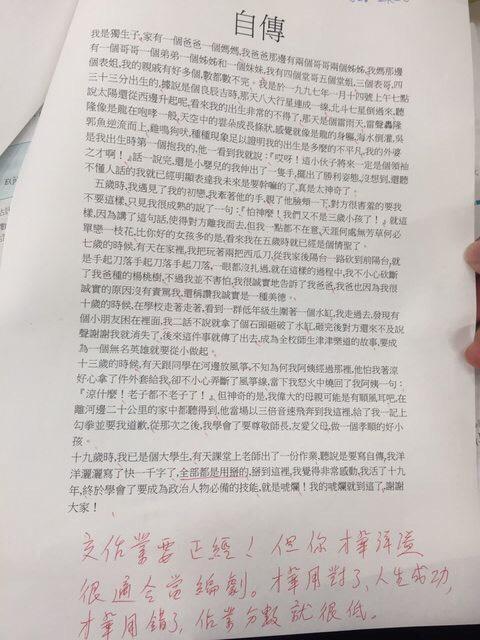 自傳
我是獨生子,家有一個爸爸一個媽媽,我爸爸那邊有兩個哥哥兩個姊姊,我媽那邊
有一個哥哥一個弟弟一個姊姊和一個妹妹,我有四個堂哥五個堂姐,三個表哥,四
個表姐,我的親戚有好多個,數都數不完。我是於一九九七年一月十四號上午七點
三十三分出生的,據說是個良辰吉時,那天八大行星連成一線,北斗七星倒過來,聽
說太陽還從西邊升起呢,看來我的出生非常的不得了,那天是個雷雨天,雷聲轟隆
隆像是龍在咆哮一般,天空中的雲朵成長條狀,感覺就像是龍的身軀,海水倒灌,吳
郭魚逆流而上,雞鳴狗吠,種種現象足以證明我的出生是多麼的不平凡,我的外婆
是我出生時第一個抱我的,他一看到我就說:『哎呀!這小伙子將來一定是個領袖
之才啊!』話一說完,還是小嬰兒的我伸出了一隻手,擺出了勝利姿勢,沒想到,還聽
不懂人話的我就已經明顯表達我未來是要幹嘛的了,真是太神奇了!
五歲時,我遇見了我的初戀,我牽著他的手,親了他臉頰一下,對方很害羞的要我
不要這樣,只見我很成熟的說了一句:『怕神麼!我們又不是三歲小孩了!』就這
樣,因為講了這句話,使得對方離我而去,但我一點都不在意,天涯何處無芳草何必
單戀一枝花,比你好的女孩多的是,看來我在五歲時就已經是個情聖了。
七歲的時候,有天在家裡,我把玩著兩把西瓜刀,從我家後陽台一路砍到前陽台,就
是手起刀落手起刀落手起刀落,一眼都沒扎過,就在這樣的過程中,我不小心砍斷
了我爸種的楊桃樹,不過我並不害怕,我很誠實地告訴了我爸爸,我爸也因為我很
誠實的原因沒有責罵我,還稱讚我誠實是一種美德。
十歲的時候,在學校走著走著,看到一群低年級生圍著一個水缸,我走過去,發現有
個小朋友困在裡面,我二話不說就拿了個石頭砸破了水缸,砸完後對方還來不及說
聲謝謝我就消失了,後來這件事就傳了出去,成為全校師生津津樂道的故事,要成
為一個無名英雄就要從小做起。
十三歲的時候,有天跟同學在河邊放風箏,不知為何我阿姨經過那裡,他怕我著涼
好心拿了件外套給我,卻不小心弄斷了風箏線,當下我怒火中燒回了我阿姨一句:
『涼什麼!老子都不老子了!』但神奇的是,我偉大的母親可能是有順風耳吧,在
離河邊二十公里的家中都聽得到,他當場以三倍音速飛奔到我這裡,給了我一記上
勾拳並要我道歉,從那次之後,我學會了要尊敬師長,友愛父母,做一個孝順的好小
孩。
十九歲時,我已是個大學生,有天課堂上老師出了一份作業,聽說是要寫自傳,我洋
洋灑灑寫了快一千字了,全部都是用掰的,掰到這裡,我覺得非常感動,我活了十九
年,終於學會了要成為政治人物必備的技能,就是唬爛!我的唬爛就到這了,謝謝
大家!
交作業要正經!但你才華洋溢
很適合當編劇。才華用對了、人生成功,
才華用錯了,作業分數就很低。